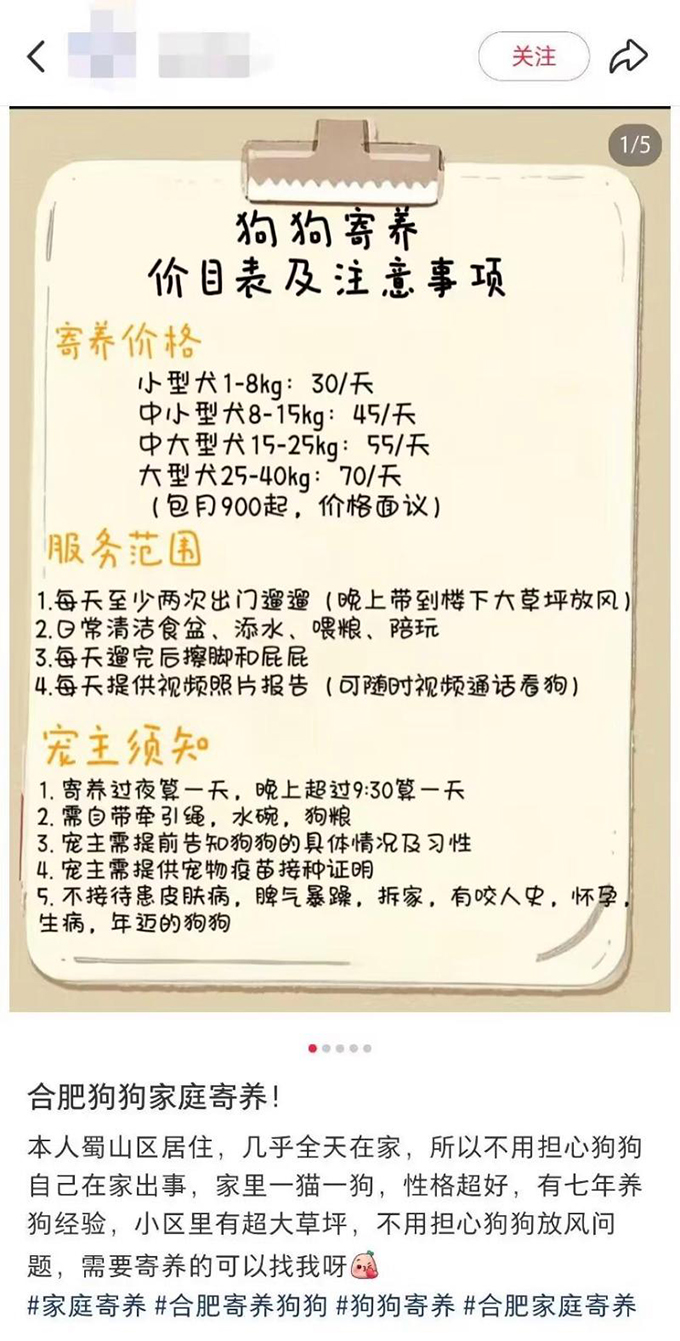 关注
1/5
狗狗寄养
价目表及注意事项
寄养价格
小型犬1-8kg：30/天
中小型犬8-15kg：45/天
中大型犬15-25kg：55/天
大型犬25-40kg：70/天
（包月900起，价格面议）
服务范围
1.每天至少两次出门遛遛（晚上带到楼下大草坪放风）
2.日常清洁食盆、添水、喂粮、陪玩
3.每天遛完后擦脚和屁屁
4.每天提供视频照片报告（可随时视频通话看狗）
宠主须知
1. 寄养过夜算一天，晚上超过9:30算一天
2. 需自带牵引绳，水碗，狗粮
3. 宠主需提前告知狗狗的具体情况及习性
4. 宠主需提供宠物疫苗接种证明
5. 不接待患皮肤病，脾气暴躁，拆家，有咬人史，怀孕，
生病，年迈的狗狗
合肥狗狗家庭寄养！
本人蜀山区居住，几乎全天在家，所以不用担心狗狗
自己在家出事，家里一猫一狗，性格超好，有七年养
狗经验，小区里有超大草坪，不用担心狗狗放风问
题，需要寄养的可以找我呀
#家庭寄养 #合肥寄养狗狗 #狗狗寄养 #合肥家庭寄养